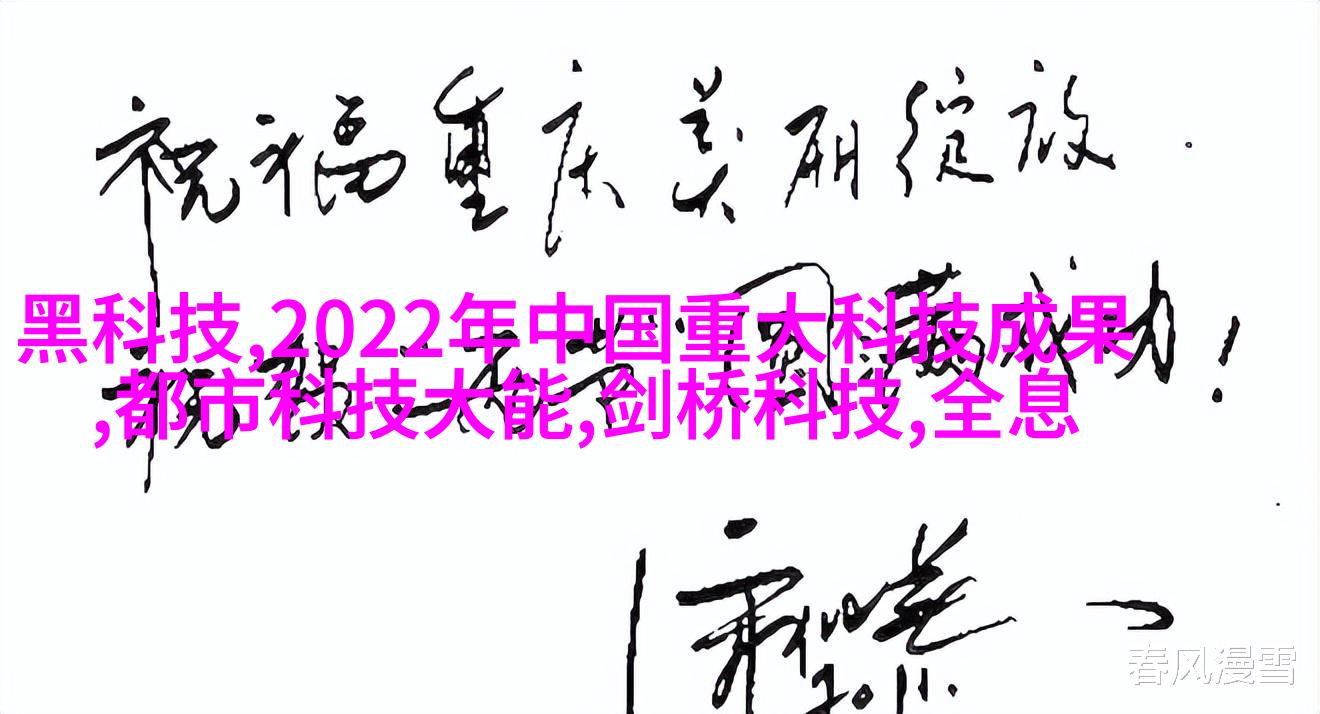 祝福重庆美丽绽放.
黑科技,2022年中国重大科技成果
祝福 圆满成功!
,都市科技大能,剑桥科技,全息
2011.
春风漫雪